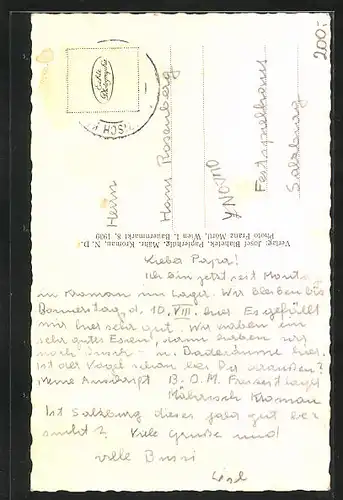 200.-
Echte
Photographie
Herrn
Hans Rosenberg
Festspielhaus
Salzburg
Verlag: Josef Blahetek, Papierhdlg., Mähr. Kromau, N. D.
Photo Franz Mörtl, Wien I, Bauernmarkt 8, 1939
Lieber Papa!
Ich bin jetzt seit Montag
in Kromau im Lager. Wir bleiben bis
Donnerstag, d. 10. VIII. hier. Es gefällt
mir hier sehr gut. Wir haben ein
sehr gutes Essen, dann haben wir
noch Dusch- u. Baderäume hier.
Ist der Vogel schon bei Dir draußen?
Meine Anschrift B. D. M. Freizeitlager
Mährisch Kromau
Ist Salzburg dieses Jahr gut be-
sucht? Viele Grüße und
viele Bussi